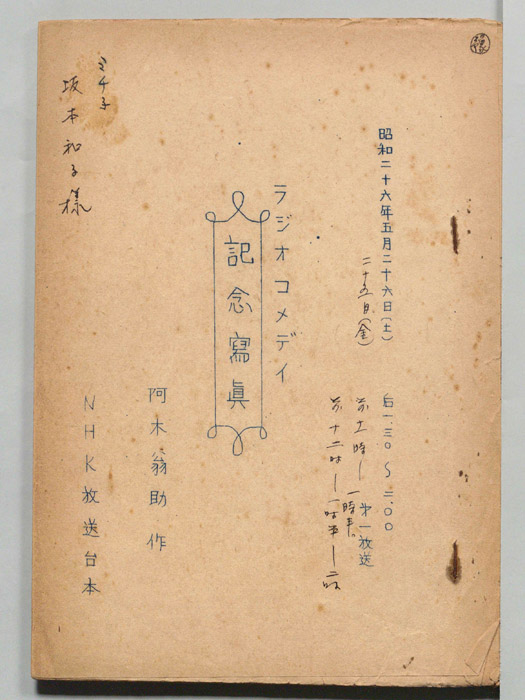 昭和二十六年五月二十六日(土)
二十五日(金)
后一.三〇～二.〇〇
第一放送
前十一時―一時半。
前十二時―一時半―二時
ラジオ コメデイ
記念寫眞
阿木翁助 作
NHK放送台本
ミチ子
坂本和子様